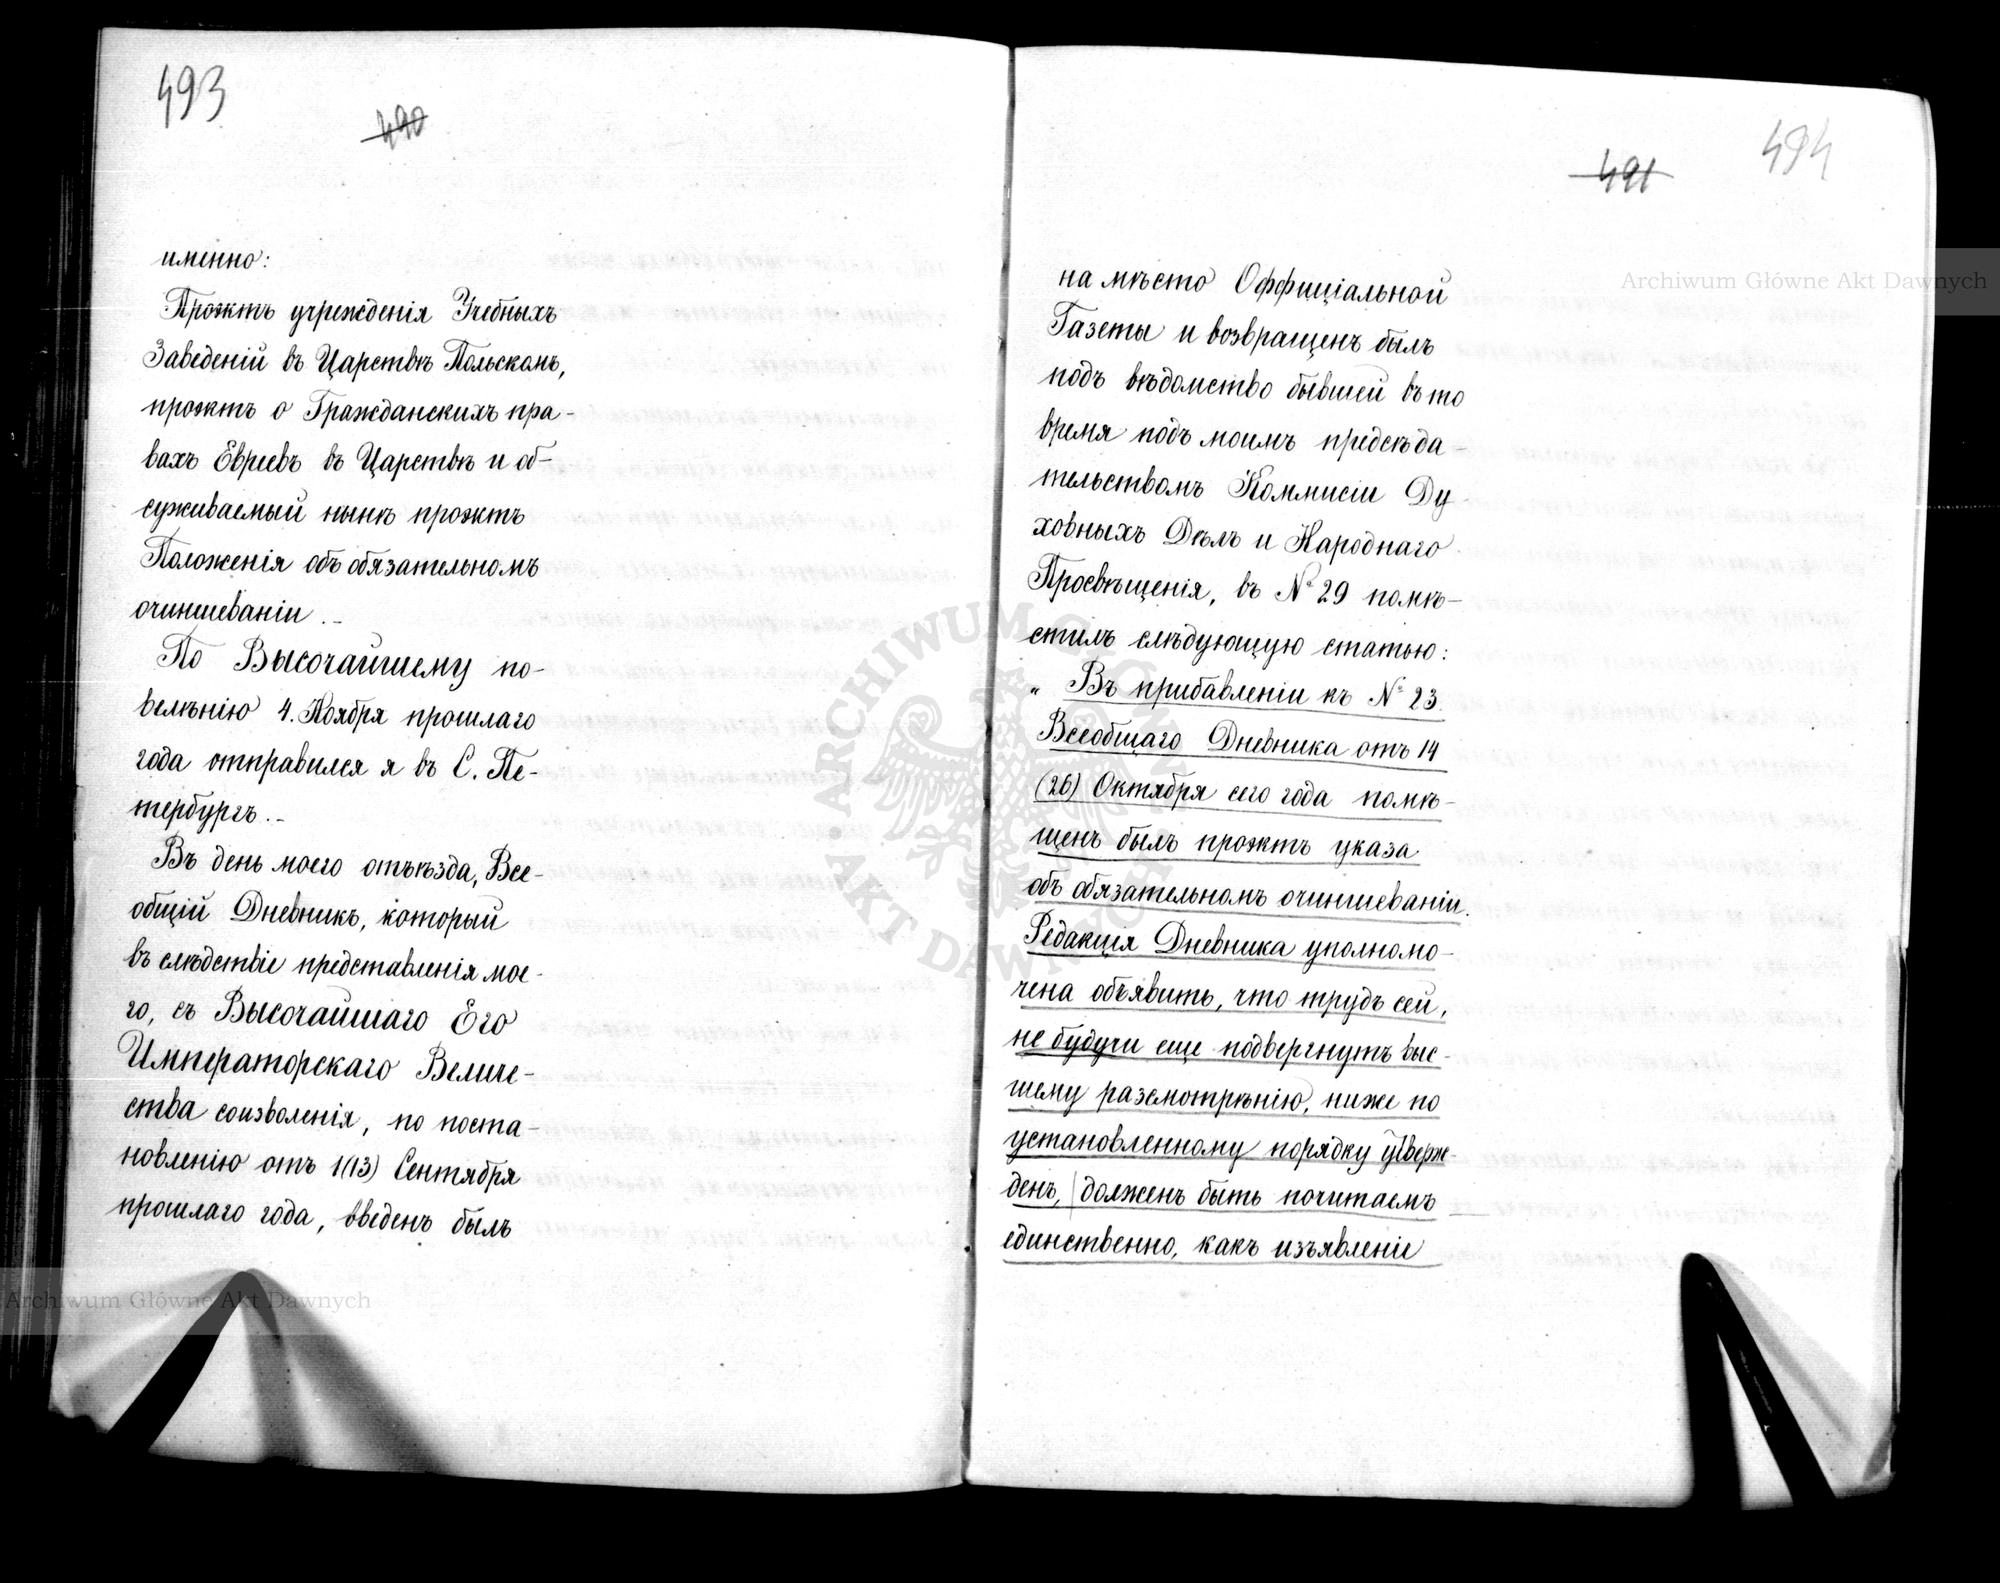 493
490
именно:
Проэктъ учрежденія Учебныхъ
Заведеній въ Царствѣ Польскомъ,
проэктъ о Гражданскихъ пра-
вахъ Евреевъ въ Царствѣ и об-
суживаемый нынѣ проэктъ
Положенія объ обязательномъ
очиншеваніи.-
По Высочайшему по-
велѣнію 4. Ноября прошлаго
года отправился я въ С. Пе-
тербургъ.-
Въ день моего отъѣзда, Все-
общій Дневникъ, который
въ слѣдствіе представленія мое-
го, съ Высочайшаго Его
Императорскаго Величе-
ства соизволенія, по поста-
новленію отъ 1(13) Сентября
прошлаго года, введенъ былъ
494
491
на мѣсто Оффиціальной
Газеты и возвращенъ былъ
подъ вѣдомство бывшей въ то
время подъ моимъ предсѣда-
тельствомъ Коммисіи Ду-
ховныхъ Дѣлъ и Народнаго
Просвѣщенія, въ № 29 помѣ-
стилъ слѣдующую статью:
„ Въ прибавленіи къ № 23.
Всеобщаго Дневника отъ 14
(26) Октября сего года помѣ-
щенъ былъ проэктъ указа
объ обязательномъ очиншеваніи.
Редакція Дневника уполномо-
чена объявить, что трудъ сей,
не будучи еще подвергнутъ выс-
шему разсмотрѣнію, ниже по
установленному порядку утверж-
денъ, долженъ быть почитаемъ
единственно, какъ изъявленіе
Archiwum Główne Akt Dawnych
Archiwum Główne Akt Dawnych
ARCHIWUM GŁÓWNE AKT DAWNYCH